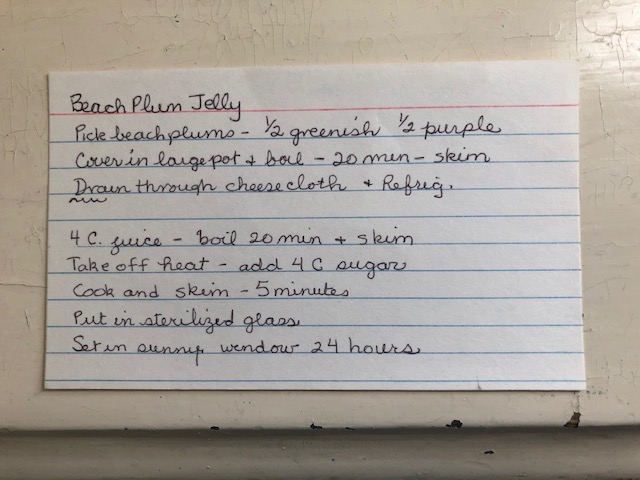 Beach Plum Jelly
Pick beachplums - 1/2 greenish 1/2 purple
Cover in large pot + boil - 20 min - skim
Drain through cheese cloth + Refrig.
4 C. juice - boil 20 min + skim
Take off heat - add 4 C sugar
Cook and skim - 5 minutes
Put in sterilized glass
Set in sunny window 24 hours